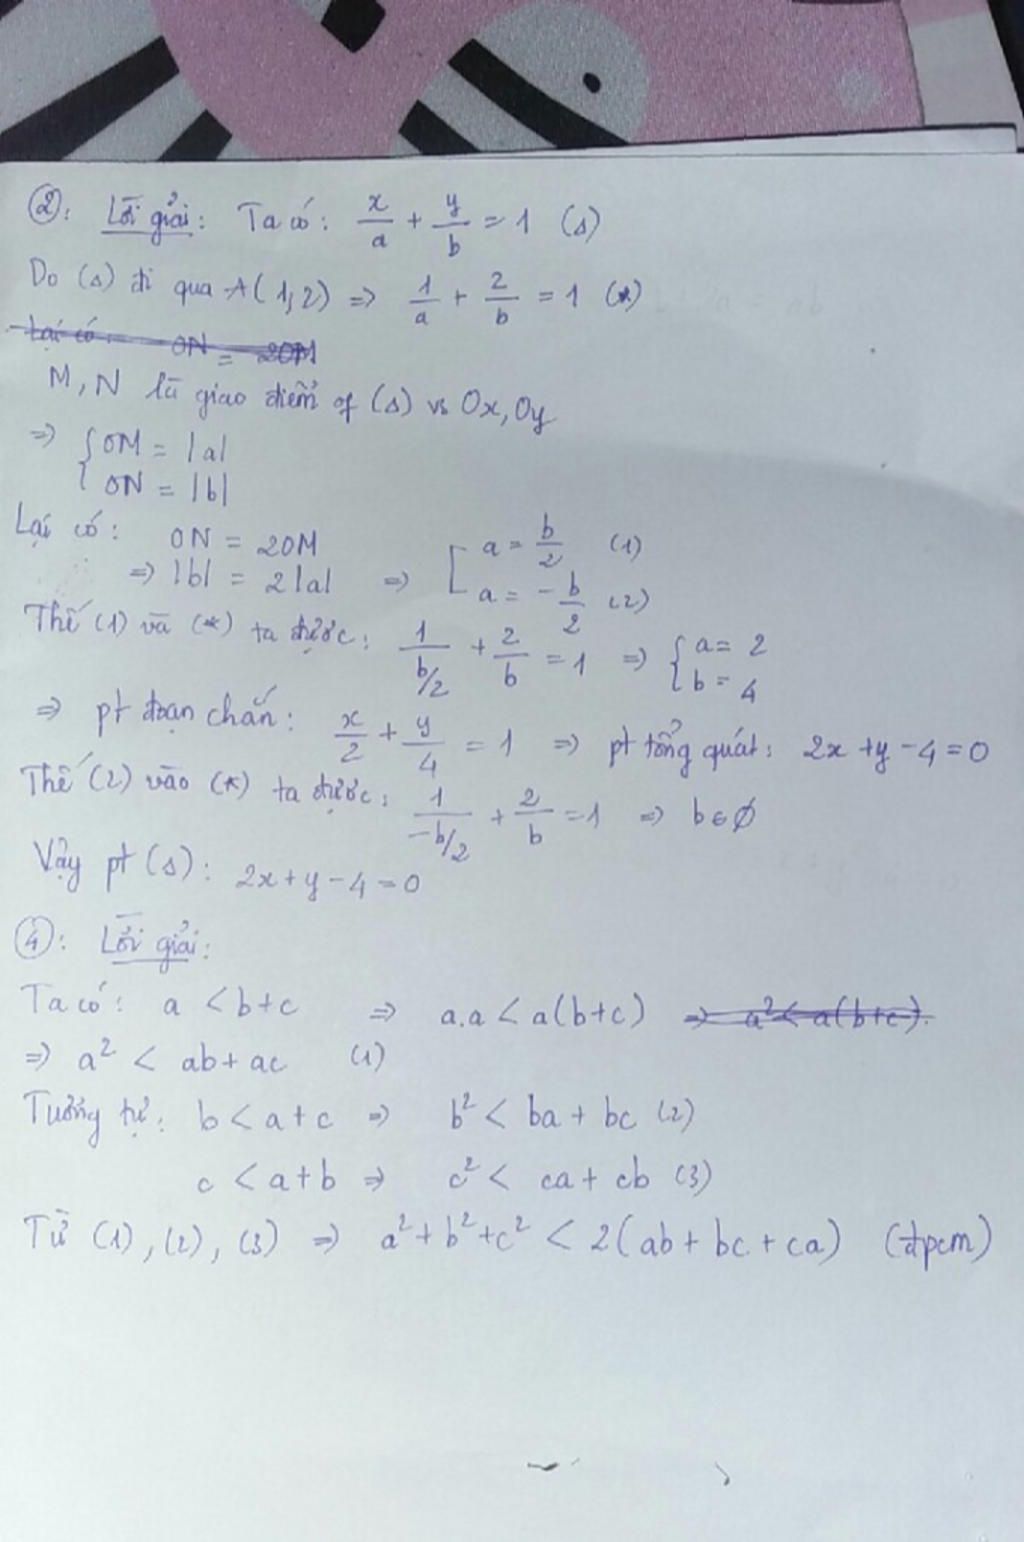 ②: Lời giải: Ta có: x/a + y/b = 1 (Δ)
Do (Δ) đi qua A(1,2) => 1/a + 2/b = 1 (*)
Lại có: ON = 2OM
M, N là giao điểm of (Δ) vs Ox, Oy
=> { OM = |a|
ON = |b|
Lại có: ON = 2OM
=> |b| = 2|a| => [ a = b/2 (1)
a = -b/2 (2)
Thế (1) và (*) ta được: 1/(b/2) + 2/b = 1 => { a = 2
b = 4
=> pt đoạn chắn: x/2 + y/4 = 1 => pt tổng quát: 2x + y - 4 = 0
Thế (2) vào (*) ta được: 1/(-b/2) + 2/b = 1 => b ∈ ∅
Vậy pt (Δ): 2x + y - 4 = 0
④: Lời giải:
Ta có: a < b + c => a.a < a(b+c) => a² < a(b+c).
=> a² < ab + ac (1)
Tương tự: b < a + c => b² < ba + bc (2)
c < a + b => c² < ca + cb (3)
Từ (1), (2), (3) => a² + b² + c² < 2(ab + bc + ca) (đpcm)